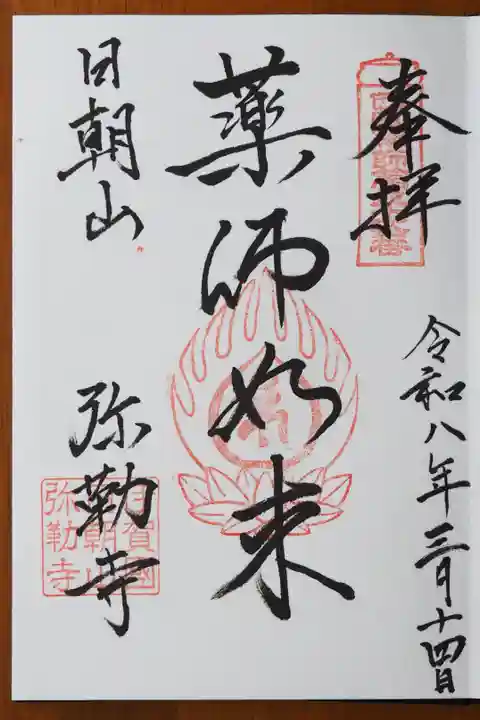 奉拝
令和八年三月十四日
薬師如来
日朝山
弥勒寺
伊賀國
日朝山
弥勒寺